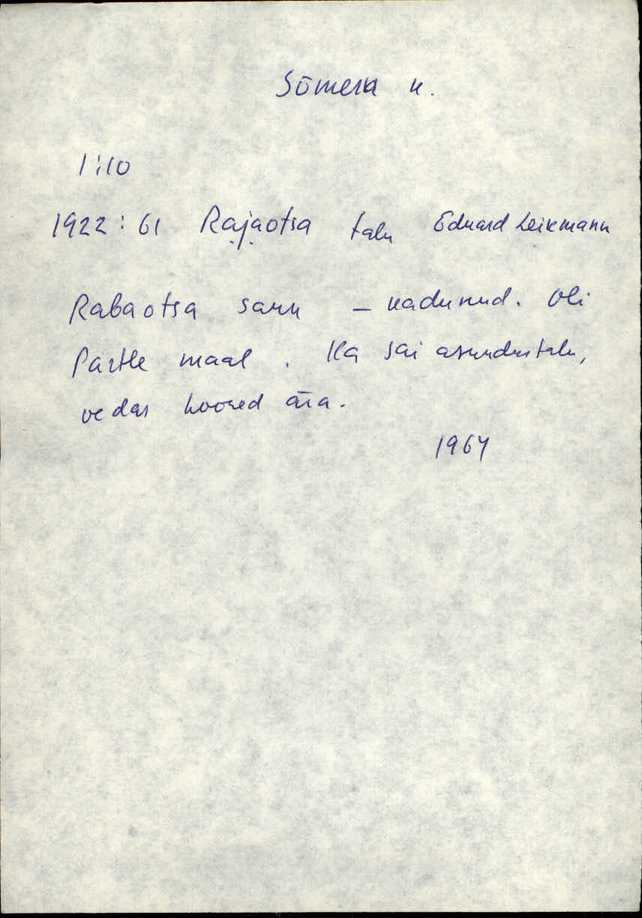 Sõmera k.
1:10
1922:61 Rajaotsa talu Eduard Leikmann
Rabaotsa saun – kadunud. Oli
Partle maal. Ka sai asundustalu,
vedas hooned ära.
1964